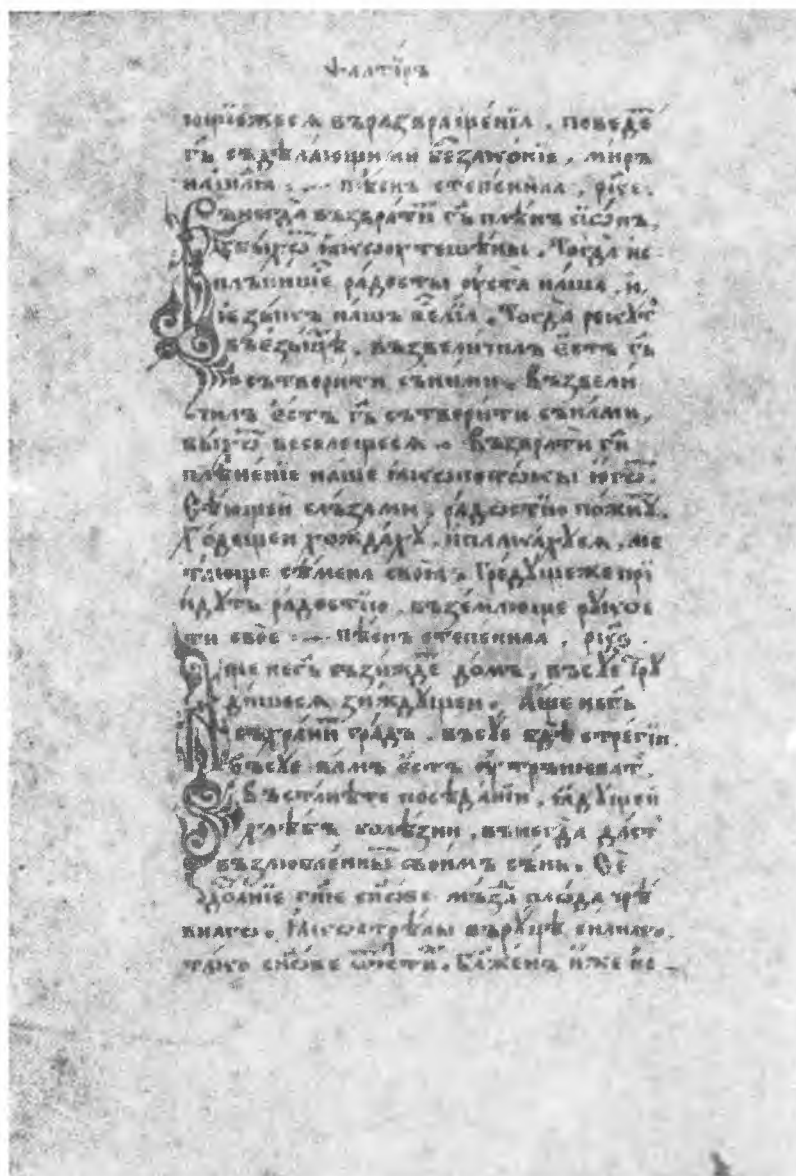 Ѱалтирь
ющїежеся въразвращенїа . поведе
гь съдѣлающими безаконїе . миръ
наіилѧ . пѣснь степеннаа , рⷱ҇е .
Внегда възврати гь плѣнъ сїѡнь ,
быхѡⷨ ꙗкѡ утѣшены . Тогда ис
плънишѧ радости оуста наша , и
ѧзыкъ нашь велїа . Тогда рекутъ
въ езыцѣⷯ , възвеличилъ естъ гь
сътворити съними . Възвели
чилъ естъ гь сътворити сънами ,
быхѡⷨ веселещеся . Възврати ги
плѣненїе наше ꙗкѡпотокы югѡⷨ .
Сѣющеи слъзами , радостїю пожнꙋⷮ .
Ходещеи хождахꙋ , иплакахꙋся , ме
тающе сѣмена своа . Грѧдꙋщеже прїи
идꙋтъ радостїю , въземлюще рукоѧ
ти свое пѣснь степеннаа ,
Аще не гь съзиждеⷮ домъ , въсуе трꙋ
дишеся зиждꙋщеи . Аще не гь
съхранит градь . въсуе бдѣ стрегїи .
Въсуе вамъ естъ оутръневати .
Въстанѣте поседанїи , ꙗдꙋщеи
хлѣбъ болѣзни , вънегда дастъ
възлюбленныⷨ своимъ сънь . Се
достоанїе гне снове мъзда плода чрѣ
внаго . Ꙗкѡстрѣлы върꙋцѣ силнаго .
тако снове ѿ . Блаженъ иже ис